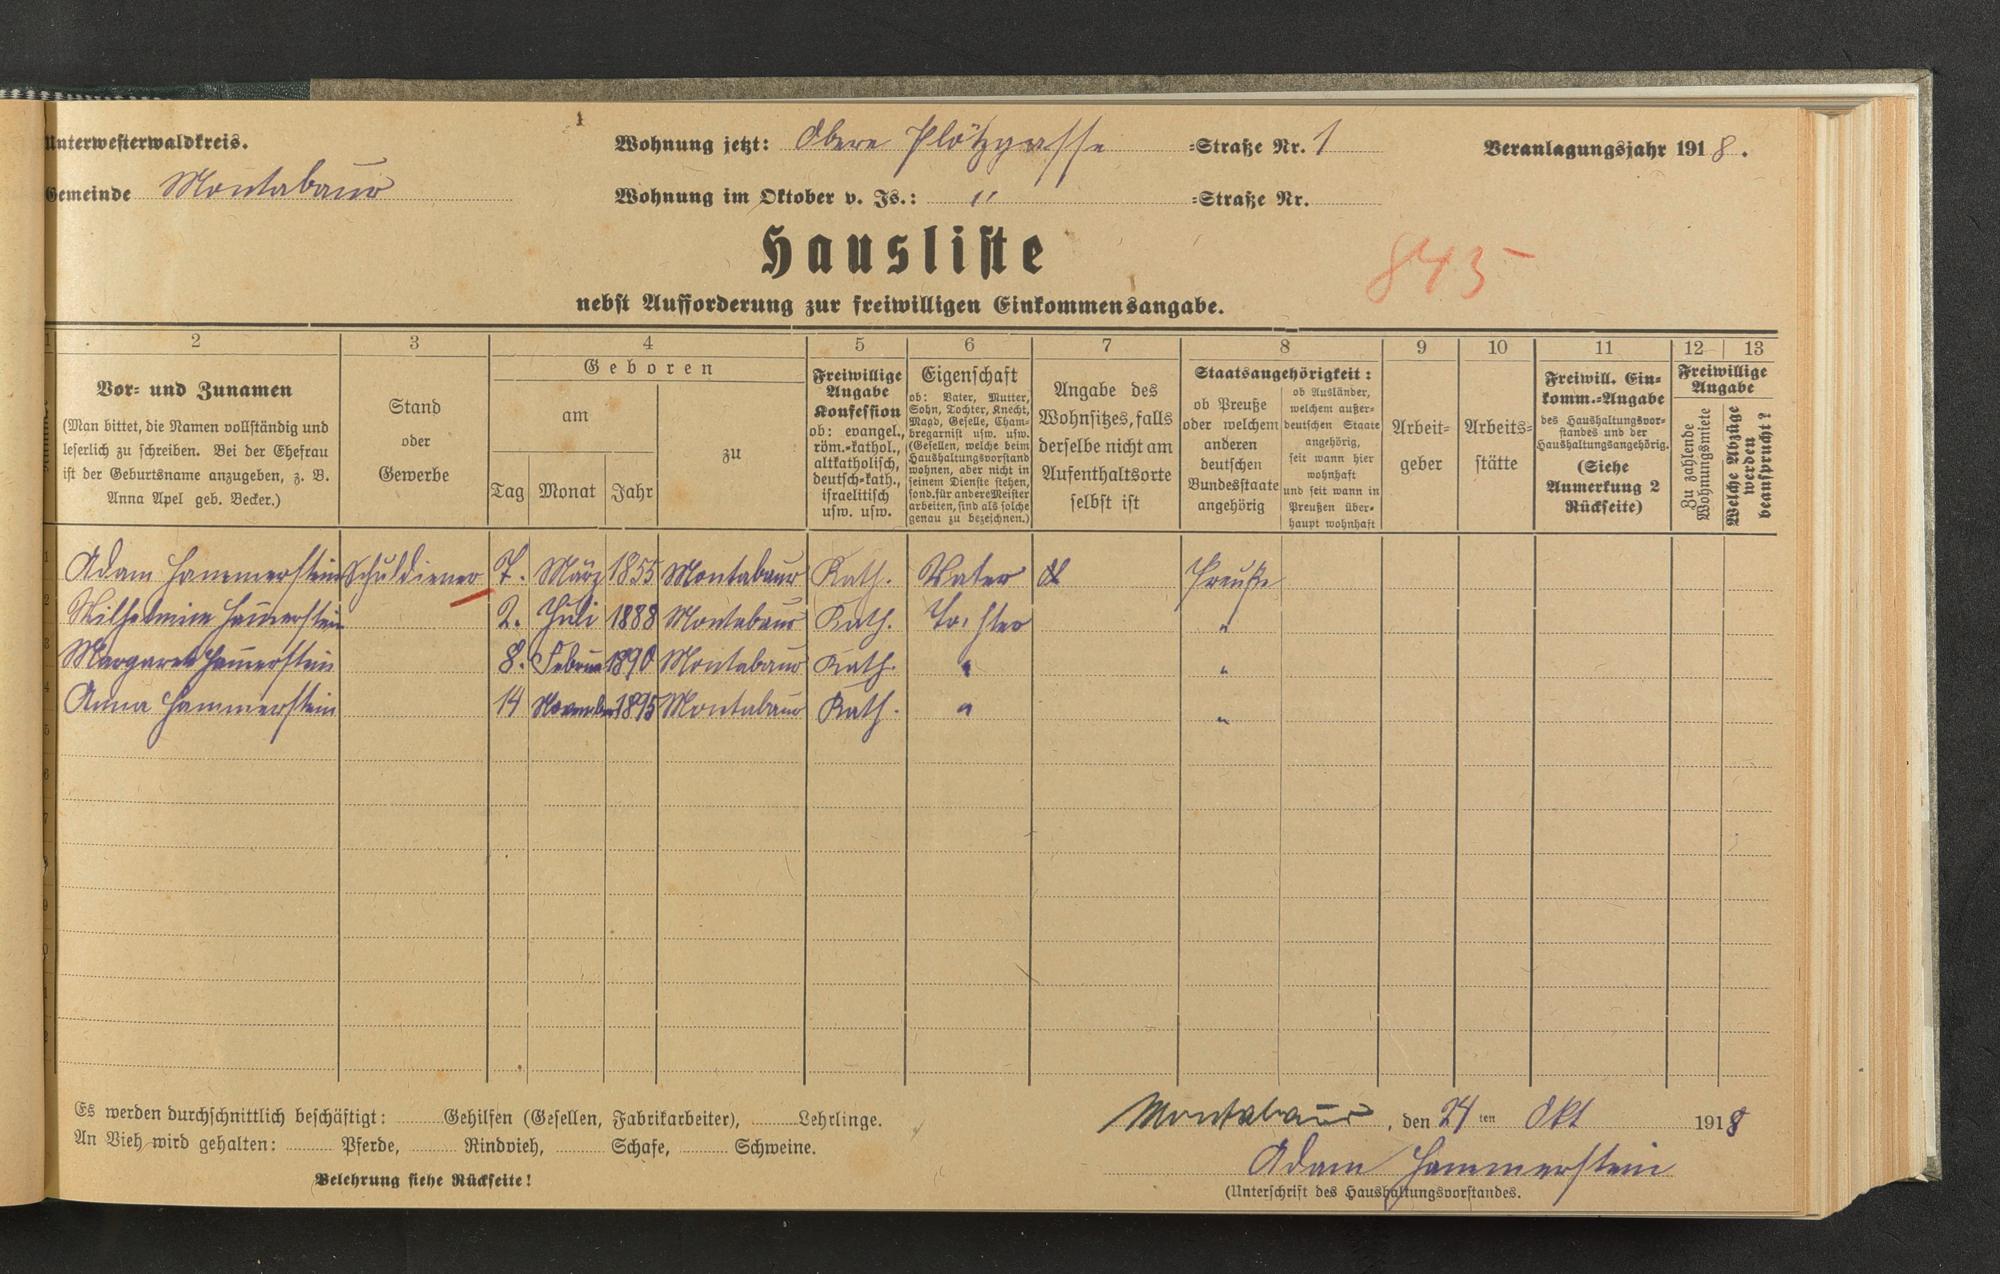 Unterwesterwaldkreis.
Wohnung jetzt: Obere Plötzgasse =Straße Nr. 1
Veranlagungsjahr 1918.
Gemeinde Montabaur
Wohnung im Oktober v. Js.: " =Straße Nr.
Hausliste
845
nebst Aufforderung zur freiwilligen Einkommensangabe.
1 2 3 4 5 6 7 8 9 10 11 12 13
Vor- und Zunamen
(Man bittet, die Namen vollständig und
leserlich zu schreiben. Bei der Ehefrau
ist der Geburtsname anzugeben, z. B.
Anna Apel geb. Becker.)
Stand
oder
Gewerbe
Geboren
am
Tag Monat Jahr
zu
Freiwillige
Angabe
Konfession
ob: evangel.,
röm.-kathol.,
altkatholisch,
deutsch-kath.,
israelitisch
usw. usw.
Eigenschaft
ob: Vater, Mutter,
Sohn, Tochter, Knecht,
Magd, Geselle, Cham-
bregarnist usw. usw.
(Gesellen, welche beim
Haushaltungsvorstand
wohnen, aber nicht in
seinem Dienste stehen,
sond. für andere Meister
arbeiten, sind als solche
genau zu bezeichnen.)
Angabe des
Wohnsitzes, falls
derselbe nicht am
Aufenthaltsorte
selbst ist
Staatsangehörigkeit:
ob Preuße
oder welchem
anderen
deutschen
Bundesstaate
angehörig
ob Ausländer,
welchem außer-
deutschen Staate
angehörig,
seit wann hier
wohnhaft
und seit wann in
Preußen über-
haupt wohnhaft
Arbeit-
geber
Arbeits-
stätte
Freiwill. Ein-
komm.-Angabe
des Haushaltungsvor-
standes und der
Haushaltungsangehörig.
(Siehe
Anmerkung 2
Rückseite)
Freiwillige
Angabe
Zu zahlende
Wohnungsmiete
Welche Abzüge
werden
beansprucht?
1 Adam Hammerstein Schuldiener 7. März 1855 Montabaur Kath. Vater Preuße
2 Wilhelmine Hammerstein 2. Juli 1888 Montabaur Kath. Tochter "
3 Margareth Hammerstein 8. Februar 1890 Montabaur Kath. " "
4 Anna Hammerstein 14 November 1895 Montabaur Kath. " "
5
6
7
9
0
1
2
Es werden durchschnittlich beschäftigt: Gehilfen (Gesellen, Fabrikarbeiter), Lehrlinge.
An Vieh wird gehalten: Pferde, Rindvieh, Schafe, Schweine.
Belehrung siehe Rückseite!
Montabaur, den 24ten Okt 1918
Adam Hammerstein
(Unterschrift des Haushaltungsvorstandes.